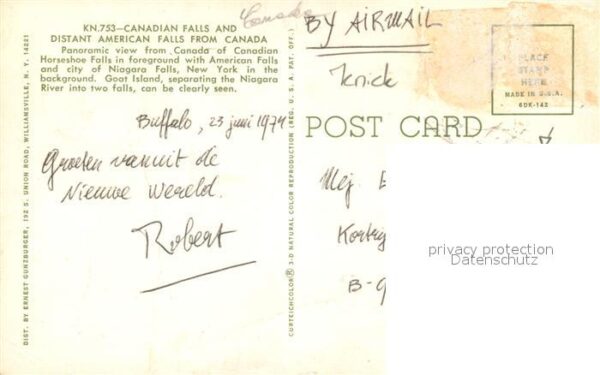 Canada
KN.753—CANADIAN FALLS AND
DISTANT AMERICAN FALLS FROM CANADA
Panoramic view from Canada of Canadian
Horseshoe Falls in foreground with American Falls
and city of Niagara Falls, New York in the
background. Goat Island, separating the Niagara
River into two falls, can be clearly seen.
Buffalo, 23 juni 1974
Groeten vanuit de
Nieuwe Wereld.
Robert
DIST. BY ERNEST GUNZBURGER, 192 S. UNION ROAD, WILLIAMSVILLE, N. Y. 14221
CURTEICHCOLOR® 3-D NATURAL COLOR REPRODUCTION (REG. U. S. A. PAT. OFF.)
BY AIRMAIL
PLACE
STAMP
HERE
MADE IN U.S.A.
6DK-142
POST CARD
Mej.
B-9
privacy protection
Datenschutz